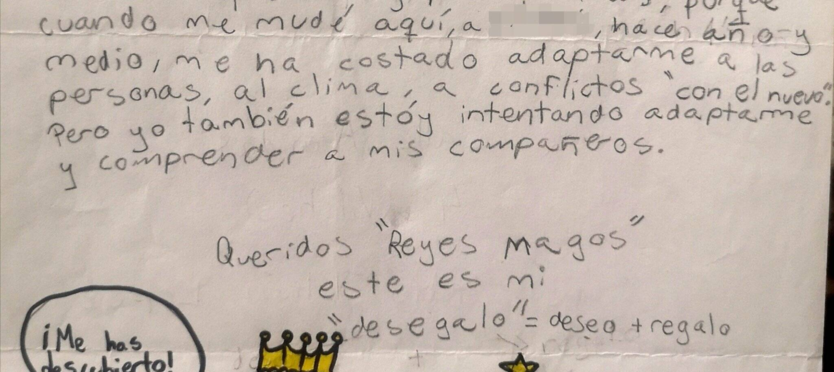 porque
cuando me mudé aquí, a , hacen año y
medio, me ha costado adaptarme a las
personas, al clima, a conflictos "con el nuevo".
Pero yo también estóy intentando adaptarme
y comprender a mis compañeros.
Queridos "Reyes magos"
este es mi
"desegalo" = deseo + regalo
¡Me has
descubierto!